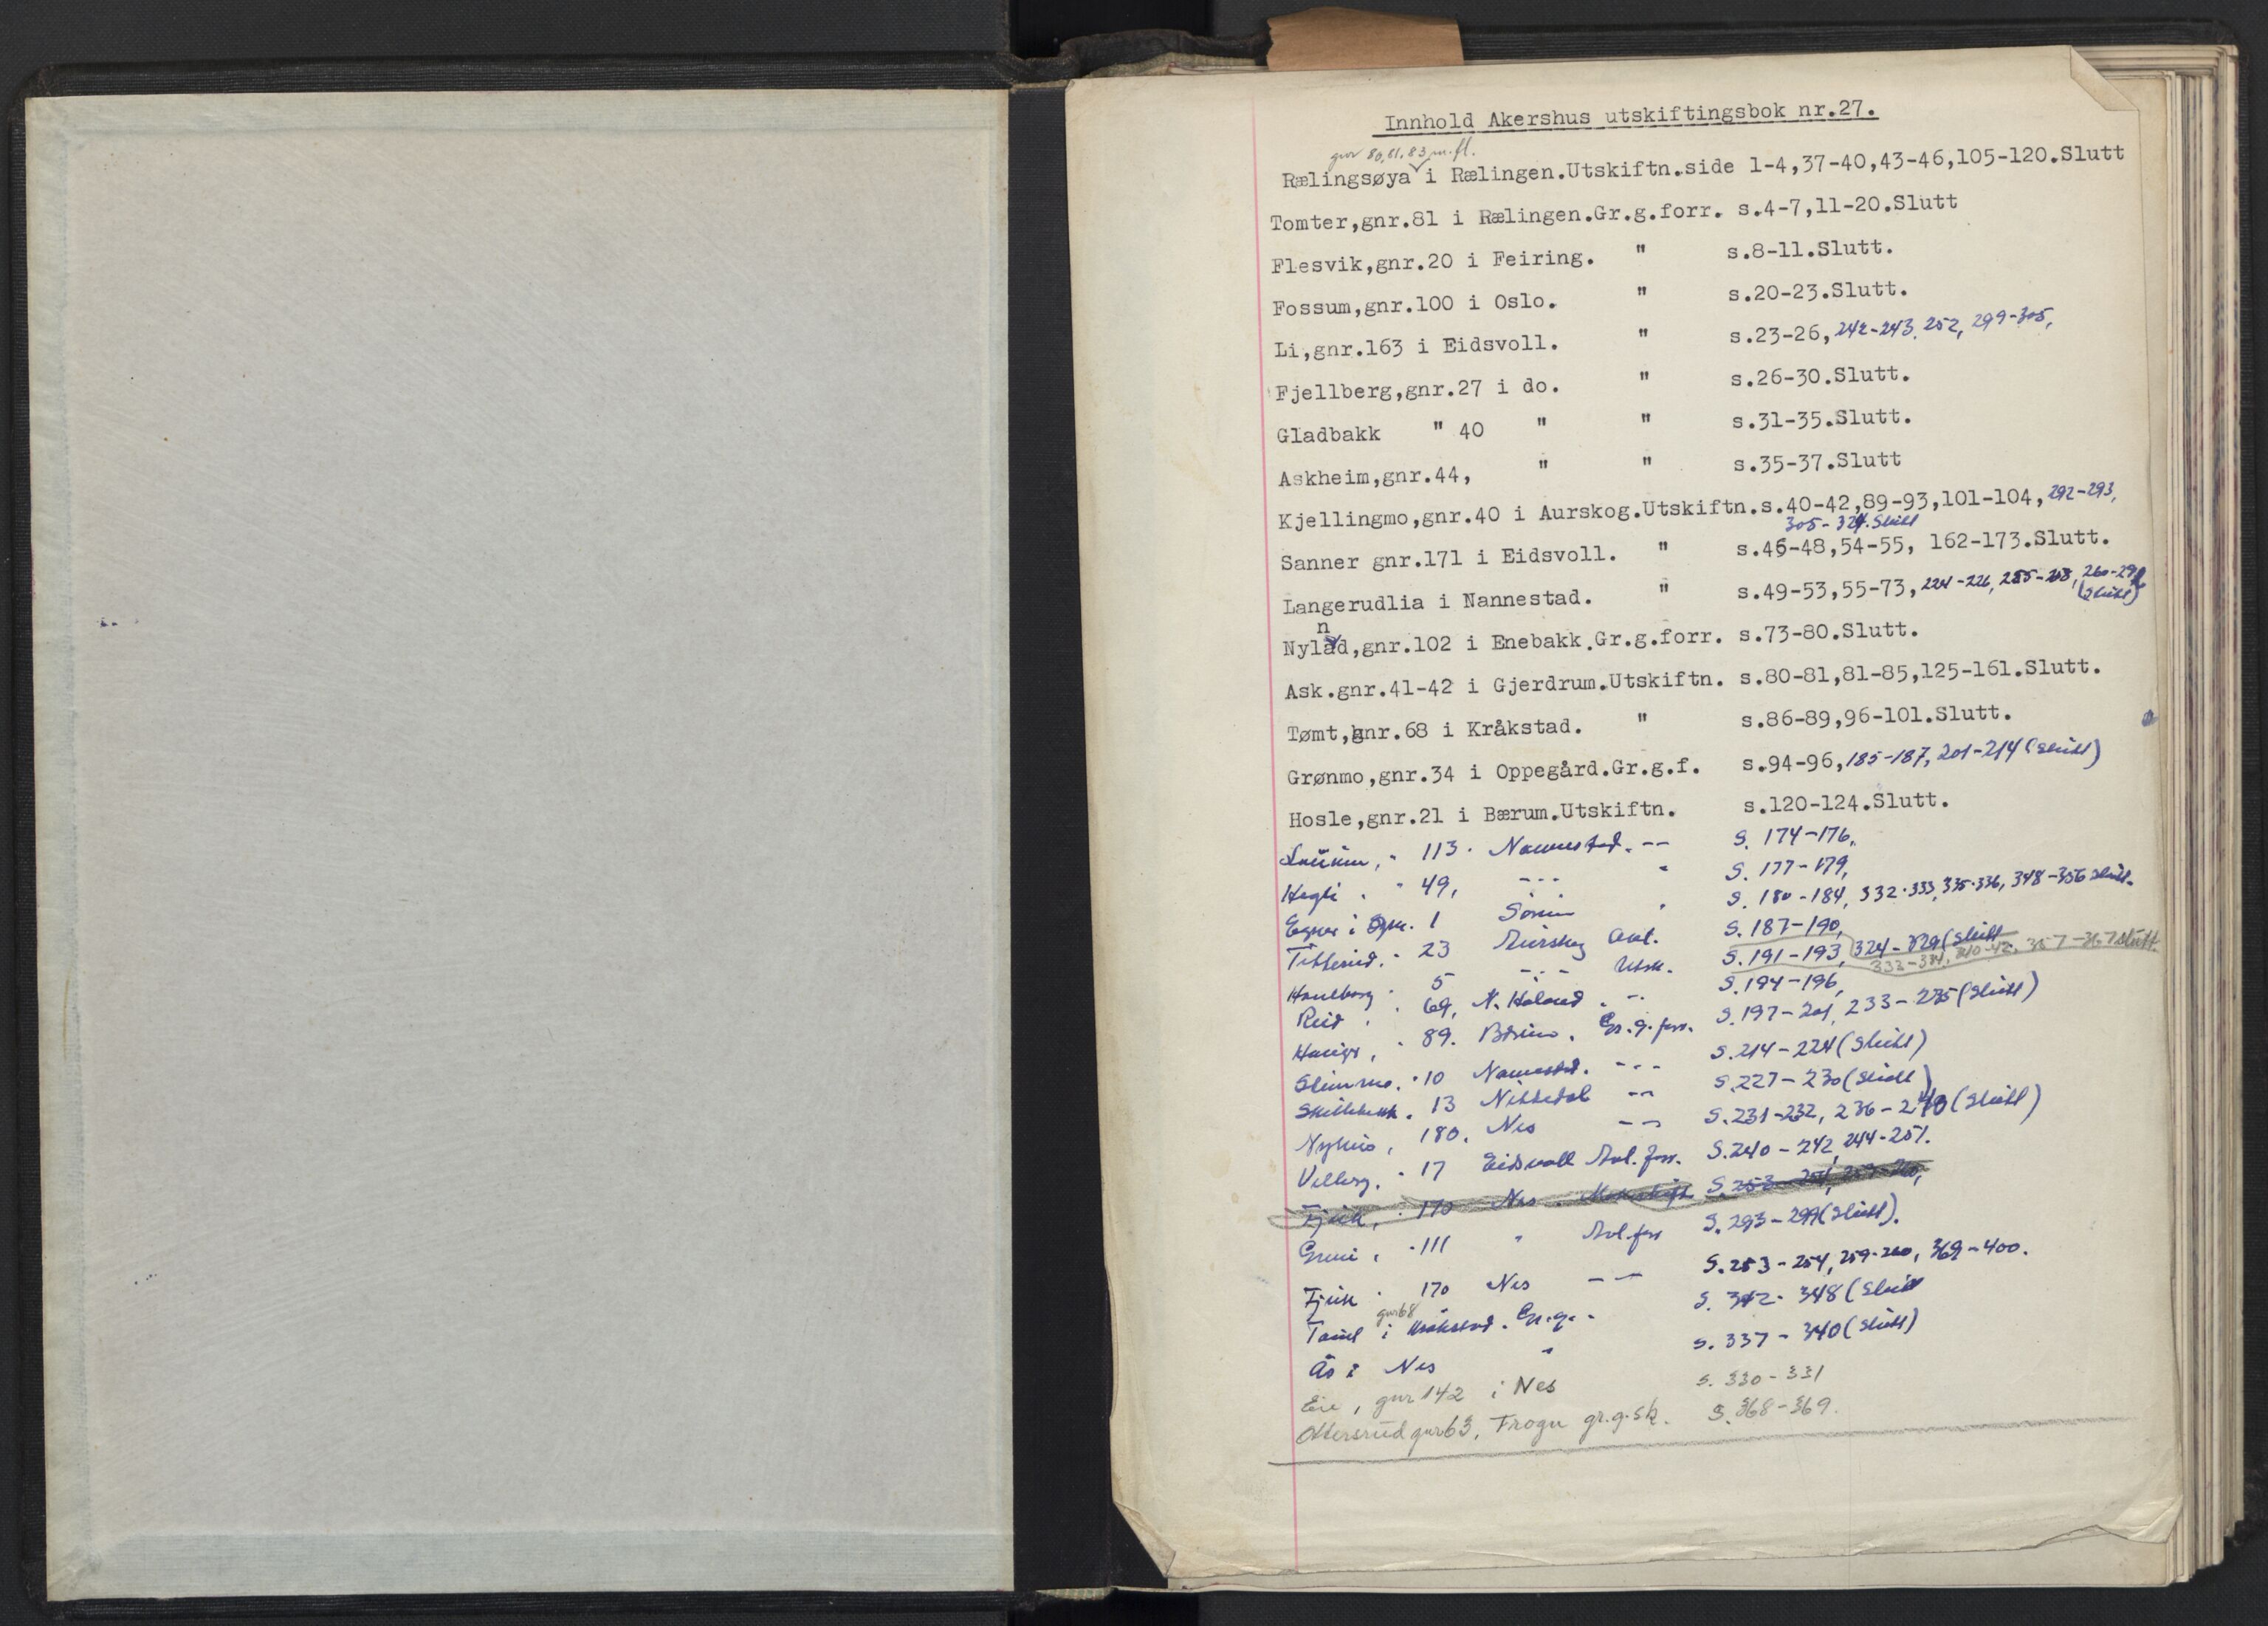 Innhold Akershus utskiftingsbok nr.27.
gnr 80,81,83 m.fl.
Rælingsøya i Rælingen.Utskiftn.side 1-4,37-40,43-46,105-120.Slutt
Tomter,gnr.81 i Rælingen.Gr.g.forr. s.4-7,11-20.Slutt
Flesvik,gnr.20 i Feiring. " s.8-11.Slutt.
Fossum,gnr.100 i Oslo. " s.20-23.Slutt.
Li,gnr.163 i Eidsvoll. " s.23-26, 242-243, 252, 299-305,
Fjellberg,gnr.27 i do. " s.26-30.Slutt.
Gladbakk " 40 " " s.31-35.Slutt.
Askheim,gnr.44, " " s.35-37.Slutt
Kjellingmo,gnr.40 i Aurskog.Utskiftn.s.40-42,89-93,101-104, 292-293,
305-324.Slutt
Sanner gnr.171 i Eidsvoll. " s.46-48,54-55, 162-173.Slutt.
Langerudlia i Nannestad. " s.49-53,55-73, 224-226, 260-292
(Slutt)
n
Nylad,gnr.102 i Enebakk.Gr.g.forr. s.73-80.Slutt.
Ask.gnr.41-42 i Gjerdrum.Utskiftn. s.80-81,81-85,125-161.Slutt.
Tømt,gnr.68 i Kråkstad. " s.86-89,96-101.Slutt.
Grønmo,gnr.34 i Oppegård.Gr.g.f. s.94-96, 185-187, 201-214 (Slutt)
Hosle,gnr.21 i Bærum.Utskiftn. s.120-124.Slutt.
" 113. Nannestad. -- S. 174-176,
Hegli . " 49, --- " S. 177-179,
1 Sørum " S. 180-184, 332-333, 335-336, 348-356 Slutt.
" 23 Aurskog Avl. S. 187-190,
5 -"- Utsk. S. 191-193, 324-329 (Slutt
333-334, 340-42, 357-367 Slutt.
69, N. Høland . -- S. 194-196,
Hauger, " 89. Bærum. Gr.g.forr. S. 197-201, 233-235 (Slutt)
" 10 Nannestad. --- S. 214-224 (Slutt)
Skillebekk. 13 Nittedal -- S. 227-230 (Slutt)
180. Nes -- S. 231-232, 236-240 (Slutt)
Vilberg. " 17 Eidsvoll Avl. forr. S. 240-242, 244-251.
Fjuk, " 170 Nes . S. 253-254, 259-260,
" 111 " Avl.forr S. 293-299 (Slutt).
Fjuk " 170 Nes -- S. 253-254, 259-260, 369-400.
gnr 68
i Kråkstad. Gr.g.- S. 342-348 (Slutt
Ås i Nes " s. 337-340 (Slutt)
Eie, gnr 142 i Nes s. 330-331
Ottersrud gnr 63, Frogn gr.g.sk. S. 368-369.